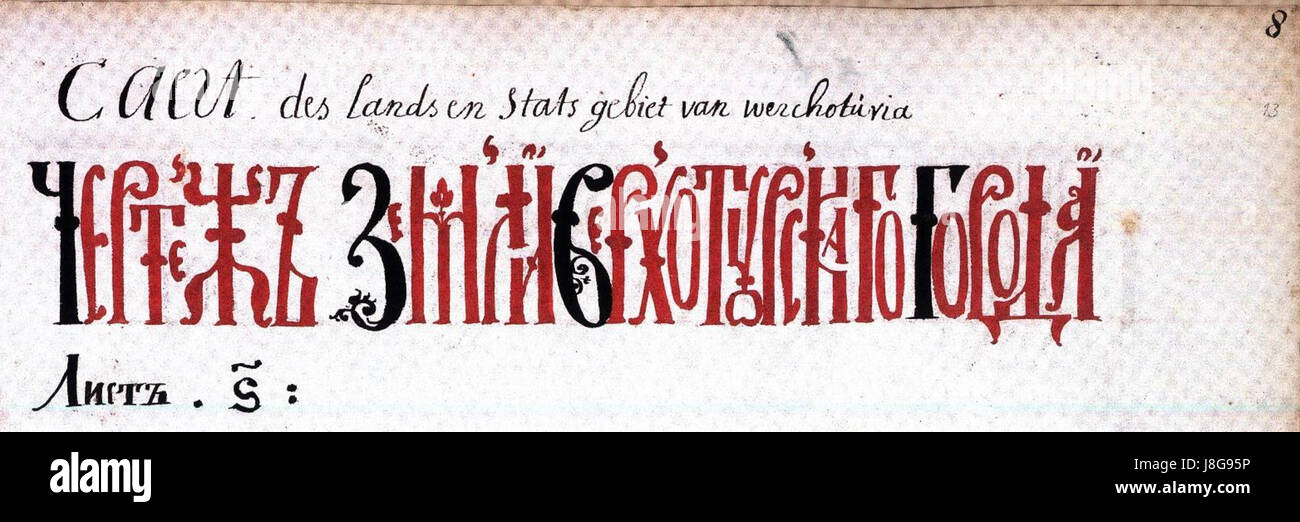 8
Caert des Lands en Stats gebiet van werchoturia
13
Чертежъ Земли Верхотурскаго Города
Листъ . ѕ҃ :
alamy
Image ID: J8G95P
www.alamy.com